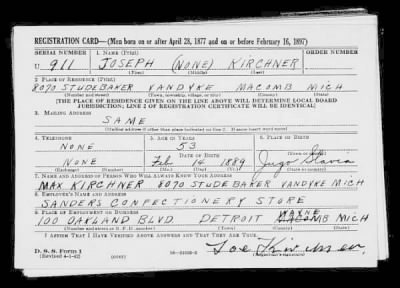 REGISTRATION CARD—(Men born on or after April 28, 1877 and on or before February 16, 1897)
SERIAL NUMBER 1. NAME (Print) ORDER NUMBER
U 911 JOSEPH (NONE) KIRCHNER
(First) (Middle) (Last)
2. PLACE OF RESIDENCE (Print)
8070 STUDEBAKER VANDYKE MACOMB MICH
(Number and street) (Town, township, village, or city) (County) (State)
[THE PLACE OF RESIDENCE GIVEN ON THE LINE ABOVE WILL DETERMINE LOCAL BOARD
JURISDICTION; LINE 2 OF REGISTRATION CERTIFICATE WILL BE IDENTICAL]
3. MAILING ADDRESS
SAME
[Mailing address if other than place indicated on line 2. If same insert word same]
4. TELEPHONE 5. AGE IN YEARS 6. PLACE OF BIRTH
NONE 53
DATE OF BIRTH
NONE Feb 14 1889 Jugo Slavia
(Exchange) (Number) (Mo.) (Day) (Yr.) (State or country)
7. NAME AND ADDRESS OF PERSON WHO WILL ALWAYS KNOW YOUR ADDRESS
MAX KIRCHNER 8070 STUDEBAKER VANDYKE MICH
8. EMPLOYER'S NAME AND ADDRESS
SANDERS CONFECTIONERY STORE
9. PLACE OF EMPLOYMENT OR BUSINESS
WAYNE
100 OAKLAND BLVD DETROIT MACOMB MICH
(Number and street or R. F. D. number) (Town) (County) (State)
I AFFIRM THAT I HAVE VERIFIED ABOVE ANSWERS AND THAT THEY ARE TRUE.
D. S. S. Form 1
(Revised 4-1-42) (over)
Joe Kirchner
(Registrant's signature)